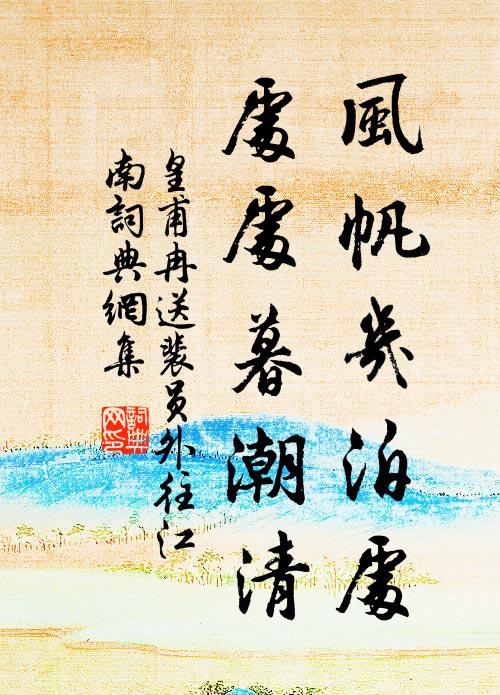 風帆幾泊處
處處暮潮清
皇甫冉送裴员外往江
南詞典網集
詞典
网印